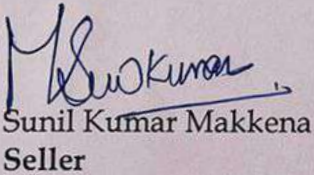 MSunilKumar
Sunil Kumar Makkena
Seller